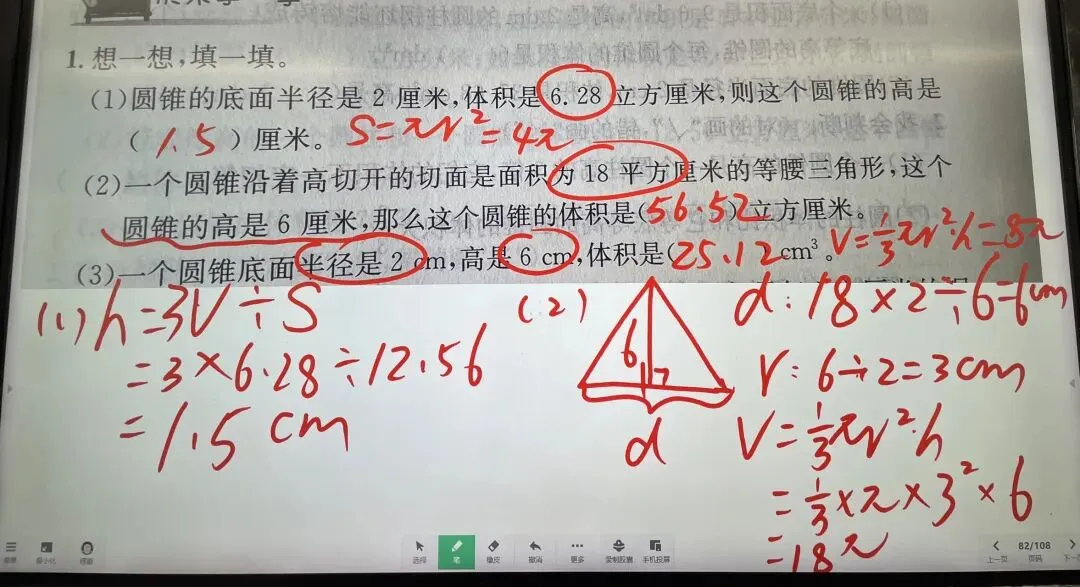 1. 想一想，填一填。
(1)圆锥的底面半径是 2 厘米，体积是 6.28 立方厘米，则这个圆锥的高是
( 1.5 )厘米。 S=πr²=4π
(2)一个圆锥沿着高切开的切面是面积为 18 平方厘米的等腰三角形，这个
圆锥的高是 6 厘米，那么这个圆锥的体积是(56.52)立方厘米。
V=⅓πr²h=8π
(3)一个圆锥底面半径是 2 cm，高是 6 cm，体积是(25.12 cm³。
(1) h=3V÷S
=3×6.28÷12.56
=1.5 cm
(2)
6
d
d:18×2÷6=6cm
r:6÷2=3cm
V=⅓πr²·h
=⅓×π×3²×6
=18π
选择 笔 橡皮 撤消 更多 录制胶囊 手机投屏
82/108
上一页 页码 下一